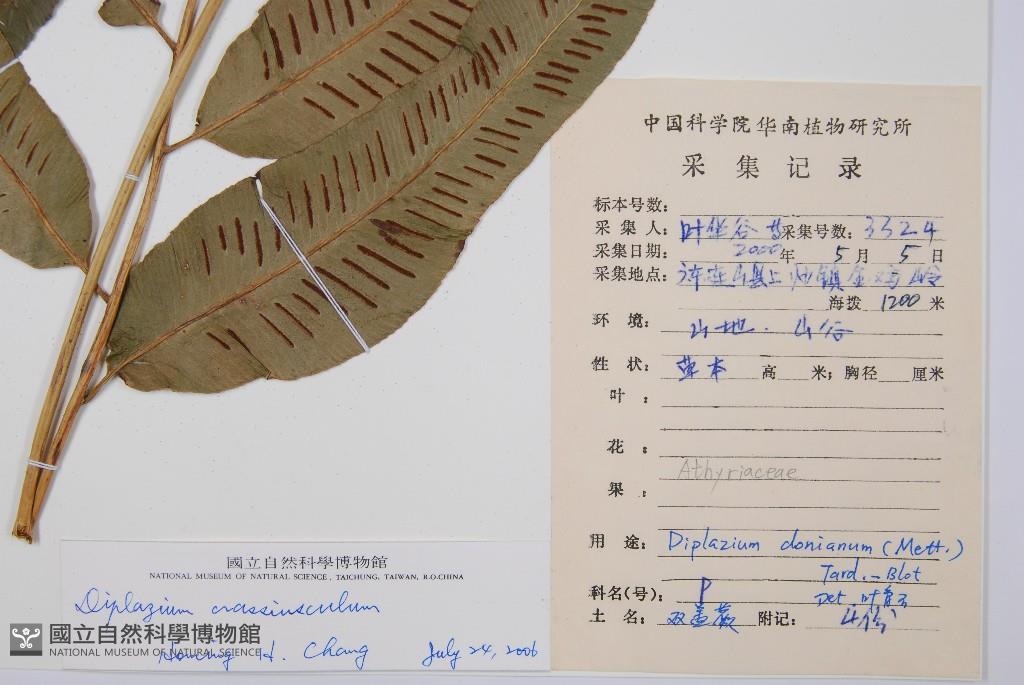 中国科学院华南植物研究所
采集记录
标本号数:
采集人: 叶华谷 等 采集号数: 3324
采集日期: 2000年 5月 5日
采集地点: 连山县上 镇金鸡岭
海拨 1200 米
环境: 山地. 山谷
性状: 草本 高 米; 胸径 厘米
叶:
花:
Athyriaceae
果:
用途: Diplazium donianum (Mett.)
Tard.-Blot
科名(号): P Det.
土名: 双盖蕨 附记: 4份
國立自然科學博物館
NATIONAL MUSEUM OF NATURAL SCIENCE, TAICHUNG, TAIWAN, R.O.CHINA
Diplazium crassiusculum
H. Chang July 24, 2006
國立自然科學博物館
NATIONAL MUSEUM OF NATURAL SCIENCE